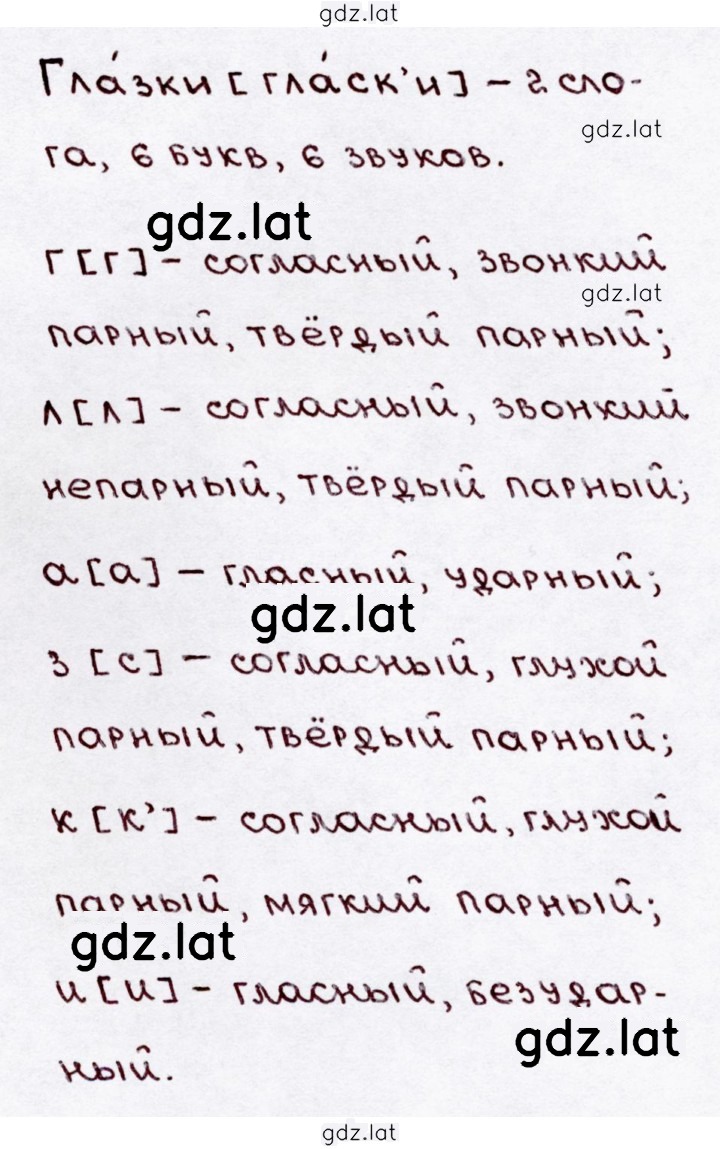 gdz.lat
Гла́зки [гла́ск’и] – 2 сло-
gdz.lat
га, 6 букв, 6 звуков.
gdz.lat
г [г] – согласный, звонкий
gdz.lat
парный, твёрдый парный;
л [л] – согласный, звонкий
непарный, твёрдый парный;
а [а] – гласный, ударный;
gdz.lat
з [с] – согласный, глухой
парный, твёрдый парный;
к [к’] – согласный, глухой
парный, мягкий парный;
gdz.lat
и [и] – гласный, безудар-
gdz.lat
ный.
gdz.lat